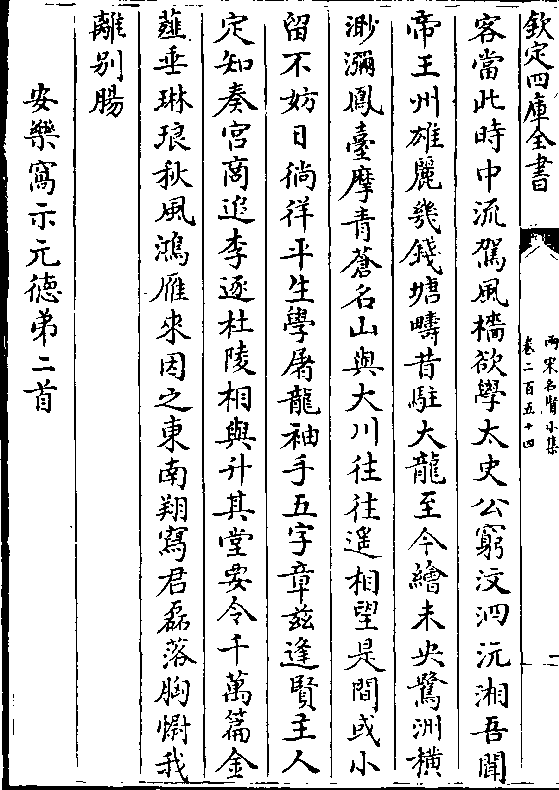 欽定四庫全書
兩宋名賢小集
卷二百五十四
客當此時中流駕風檣欲學太史公窮汶泗沅湘吾聞
帝王州雄麗幾錢塘疇昔駐大龍至今繪未央鷺洲横
渺瀰鳳臺摩青蒼名山與大川往往遥相望是間或小
留不妨日徜徉平生學屠龍袖手五字章兹逢賢主人
定知奏宫商追李逐杜陵相與升其堂要令千萬篇金
薤垂琳琅秋風鴻雁來因之東南翔寫君磊落胸慰我
離别腸
安樂窩示元德弟二首